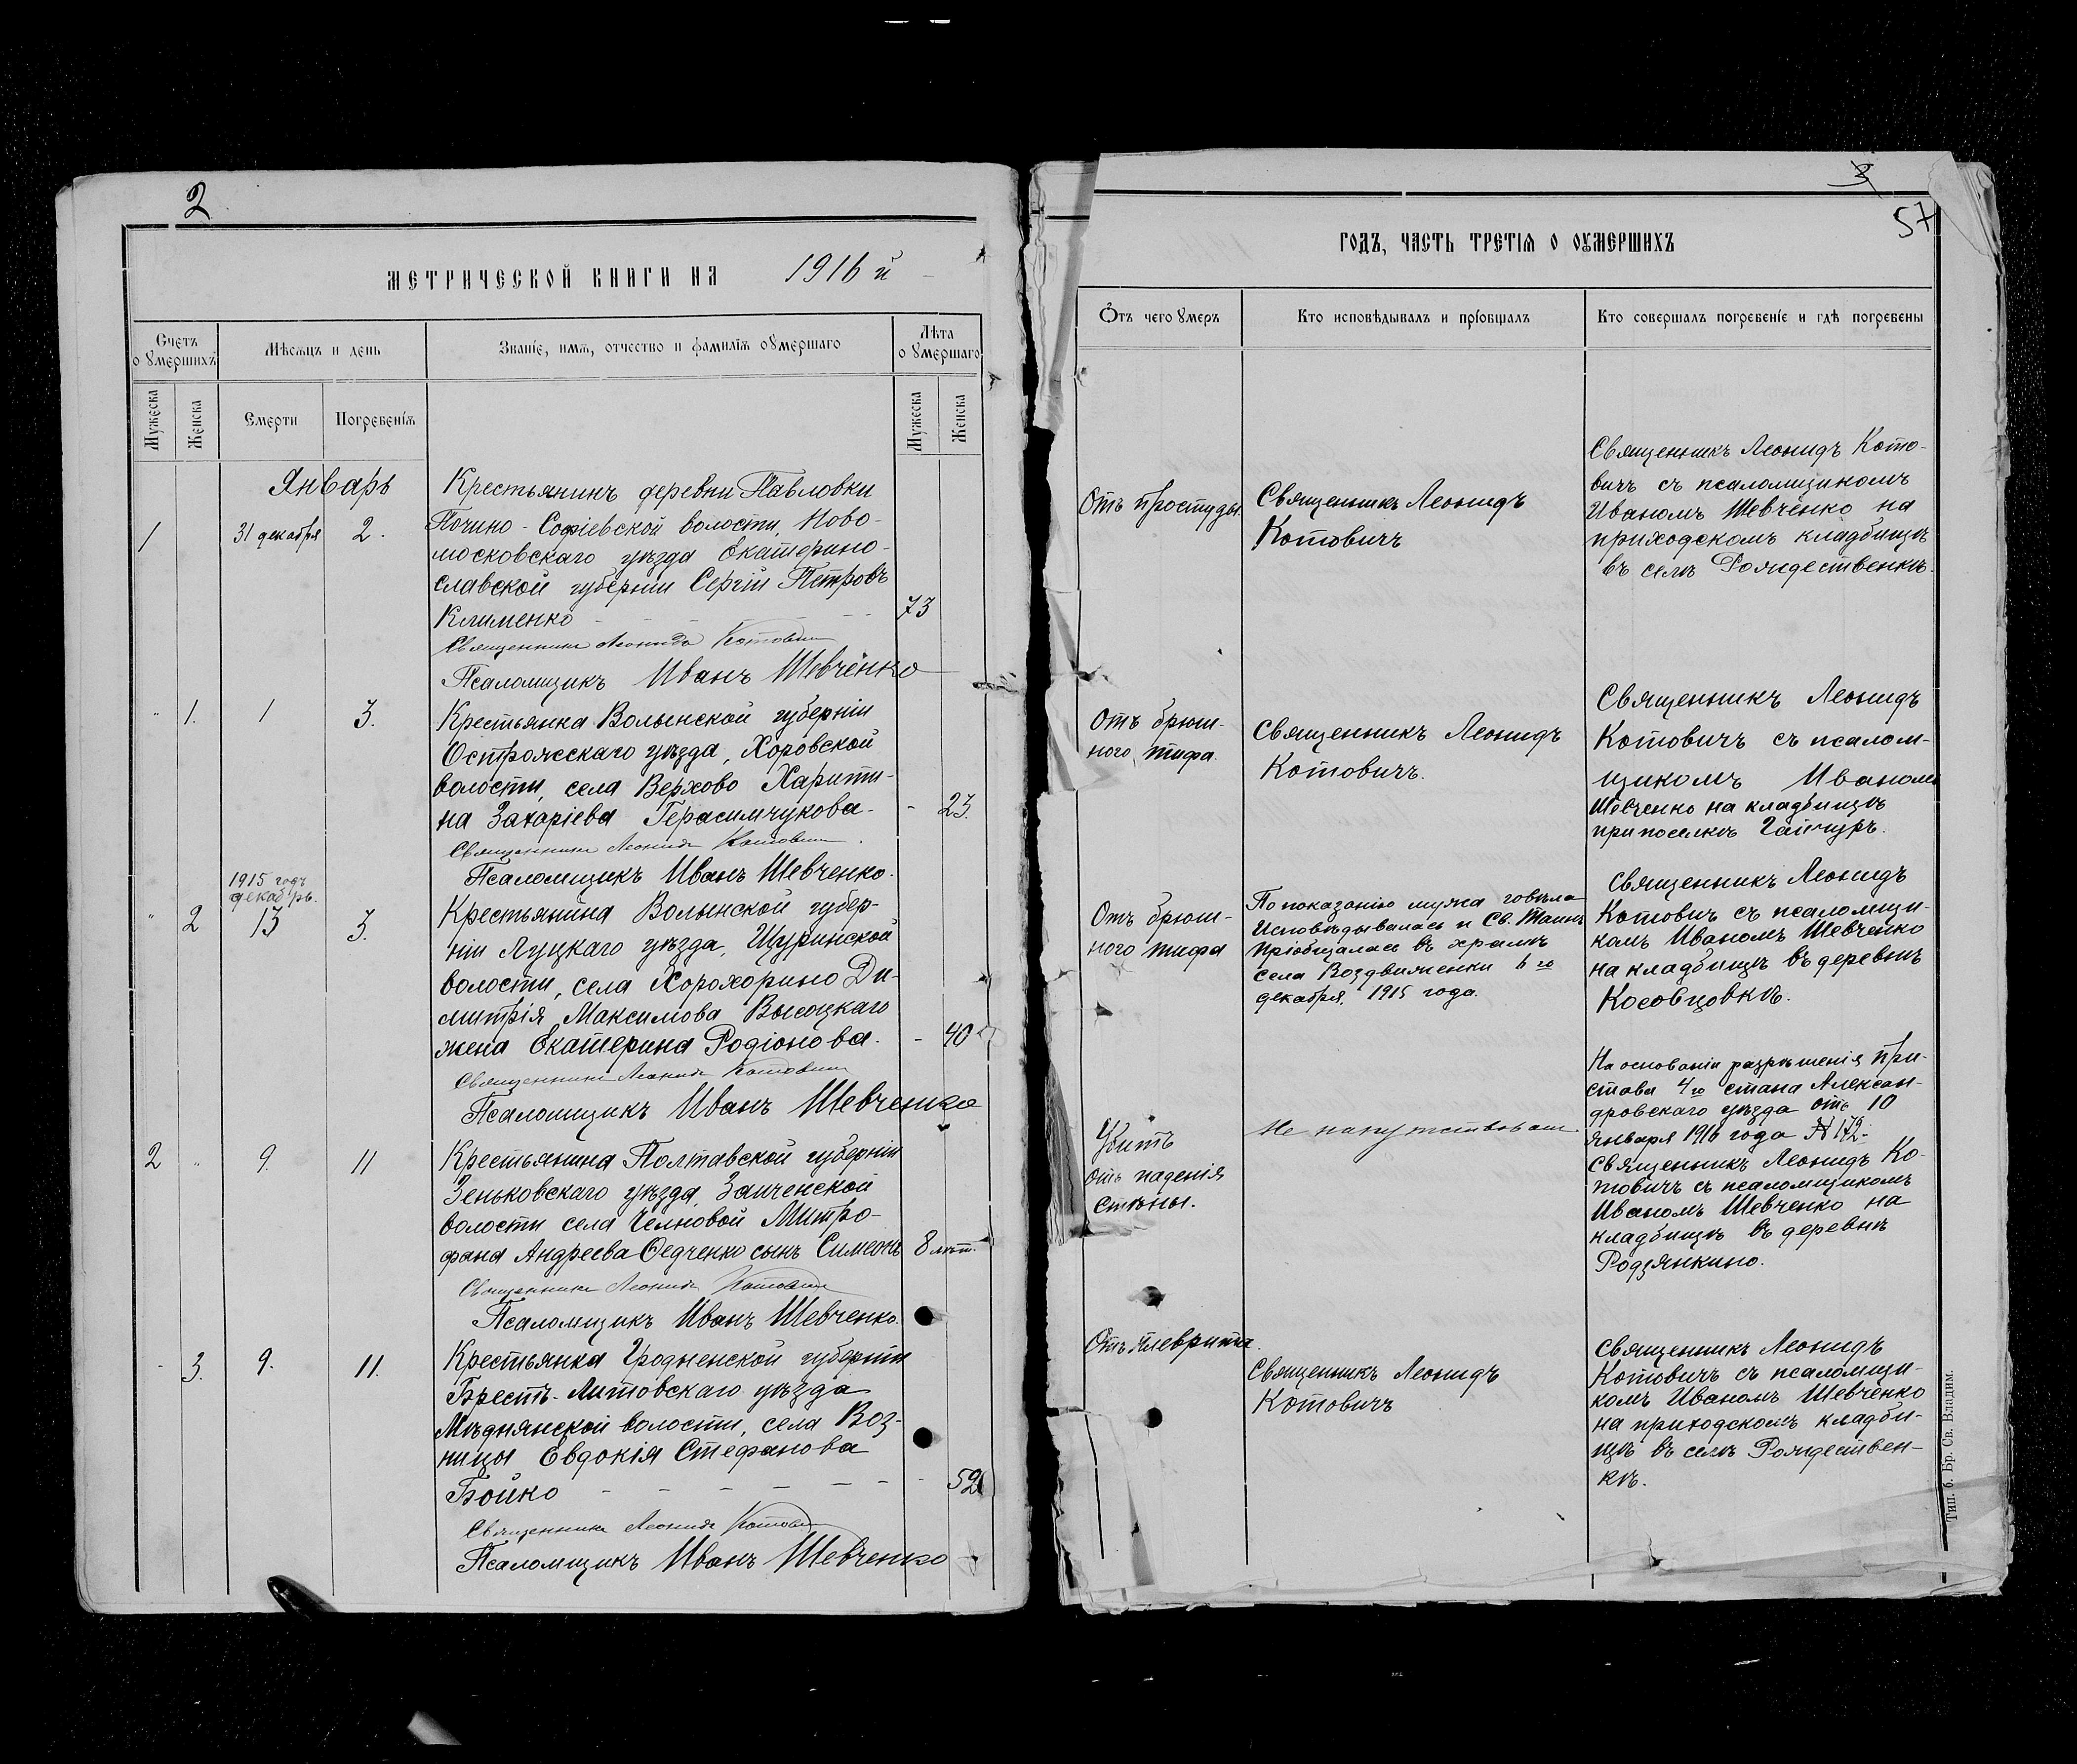 2
МЕТРИЧЕСКОЙ КНИГИ НА 1916 й
Счетъ оумершихъ
Мѣсяцъ и день
Званіе, имя, отчество и фамилія оумершаго
Лѣта оумершаго
Мужеска
Женска
Смерти
Погребенія
Мужеска
Женска
Январь
1
31 декабря
2.
Крестьянинъ деревни Павловки
Почино-Софіевской волости, Ново-
московскаго уѣзда Екатерино-
славской губерніи Сергій Петровъ
Клименко
73
Священникъ Леонидъ Котовичъ
Псаломщикъ Иванъ Шевченко
" 1. 1 3.
Крестьянка Волынской губерніи
Острожсскаго уѣзда, Хоровской
волости, села Верхово Харити-
на Захаріева Герасимчукова -
- 23.
Священникъ Леонидъ Котовичъ
Псаломщикъ Иванъ Шевченко.
1915 годъ
декабрь.
" 2 13 3.
Крестьянина Волынской губер-
ніи Луцкаго уѣзда, Щуринской
волости, села Хорохорино Ди-
митрія Максимова Высоцкаго
жена Екатерина Родіонова.
- 40
Священникъ Леонидъ Котовичъ
Псаломщикъ Иванъ Шевченко
2 " 9. 11
Крестьянина Полтавской губерніи
Зеньковскаго уѣзда, Заиченской
волости села Челновой Митро-
фана Андреева Ѳедченко сынъ Симеонъ
8 лѣт.
Священникъ Леонидъ Котовичъ
Псаломщикъ Иванъ Шевченко.
- 3. 9. 11.
Крестьянка Гродненской губерніи
Брестъ-Литовскаго уѣзда
Мѣднянской волости, села Воз-
ницы Евдокія Стефанова
Бойко
52
Священникъ Леонидъ Котовичъ
Псаломщикъ Иванъ Шевченко
3
57
ГОДЪ, ЧАСТЬ ТРЕТІЯ О ОУМЕРШИХЪ
Отъ чего умеръ
Кто исповѣдывалъ и пріобщалъ
Кто совершалъ погребеніе и гдѣ погребены
Отъ простуды.
Священникъ Леонидъ
Котовичъ
Священникъ Леонидъ Кото-
вичъ съ псаломщикомъ
Иваномъ Шевченко на
приходскомъ кладбищѣ
въ селѣ Рождественкѣ.
Отъ брюш-
ного тифа.
Священникъ Леонидъ
Котовичъ.
Священникъ Леонидъ
Котовичъ съ псалом-
щикомъ Иваномъ
Шевченко на кладбищѣ
при поселкѣ Гайчуръ.
Отъ брюш-
ного тифа
По показанію мужа говѣла
Исповѣдывалась и Св. Таинъ
пріобщалась въ храмѣ
села Воздвиженки 6го
декабря, 1915 года.
Священникъ Леонидъ
Котович съ псаломщи-
комъ Иваномъ Шевченко
на кладбищѣ въ деревнѣ
Косовцовкѣ.
Убитъ
отъ паденія
стѣны.
Не напутствован.
На основаніи разрѣшенія при-
става 4го стана Алексан-
дровскаго уѣзда отъ 10
января 1916 года № 172.
Священникъ Леонидъ Ко-
товичъ съ псаломщикомъ
Иваномъ Шевченко на
кладбищѣ въ деревнѣ
Родзянкино.
Отъ плеврита.
Священникъ Леонидъ
Котовичъ
Священникъ Леонидъ
Котовичъ съ псаломщи-
комъ Иваномъ Шевченко
на приходскомъ кладби-
щѣ въ селѣ Рождествен-
кѣ.
Тип. б. Бр. Св. Владим.